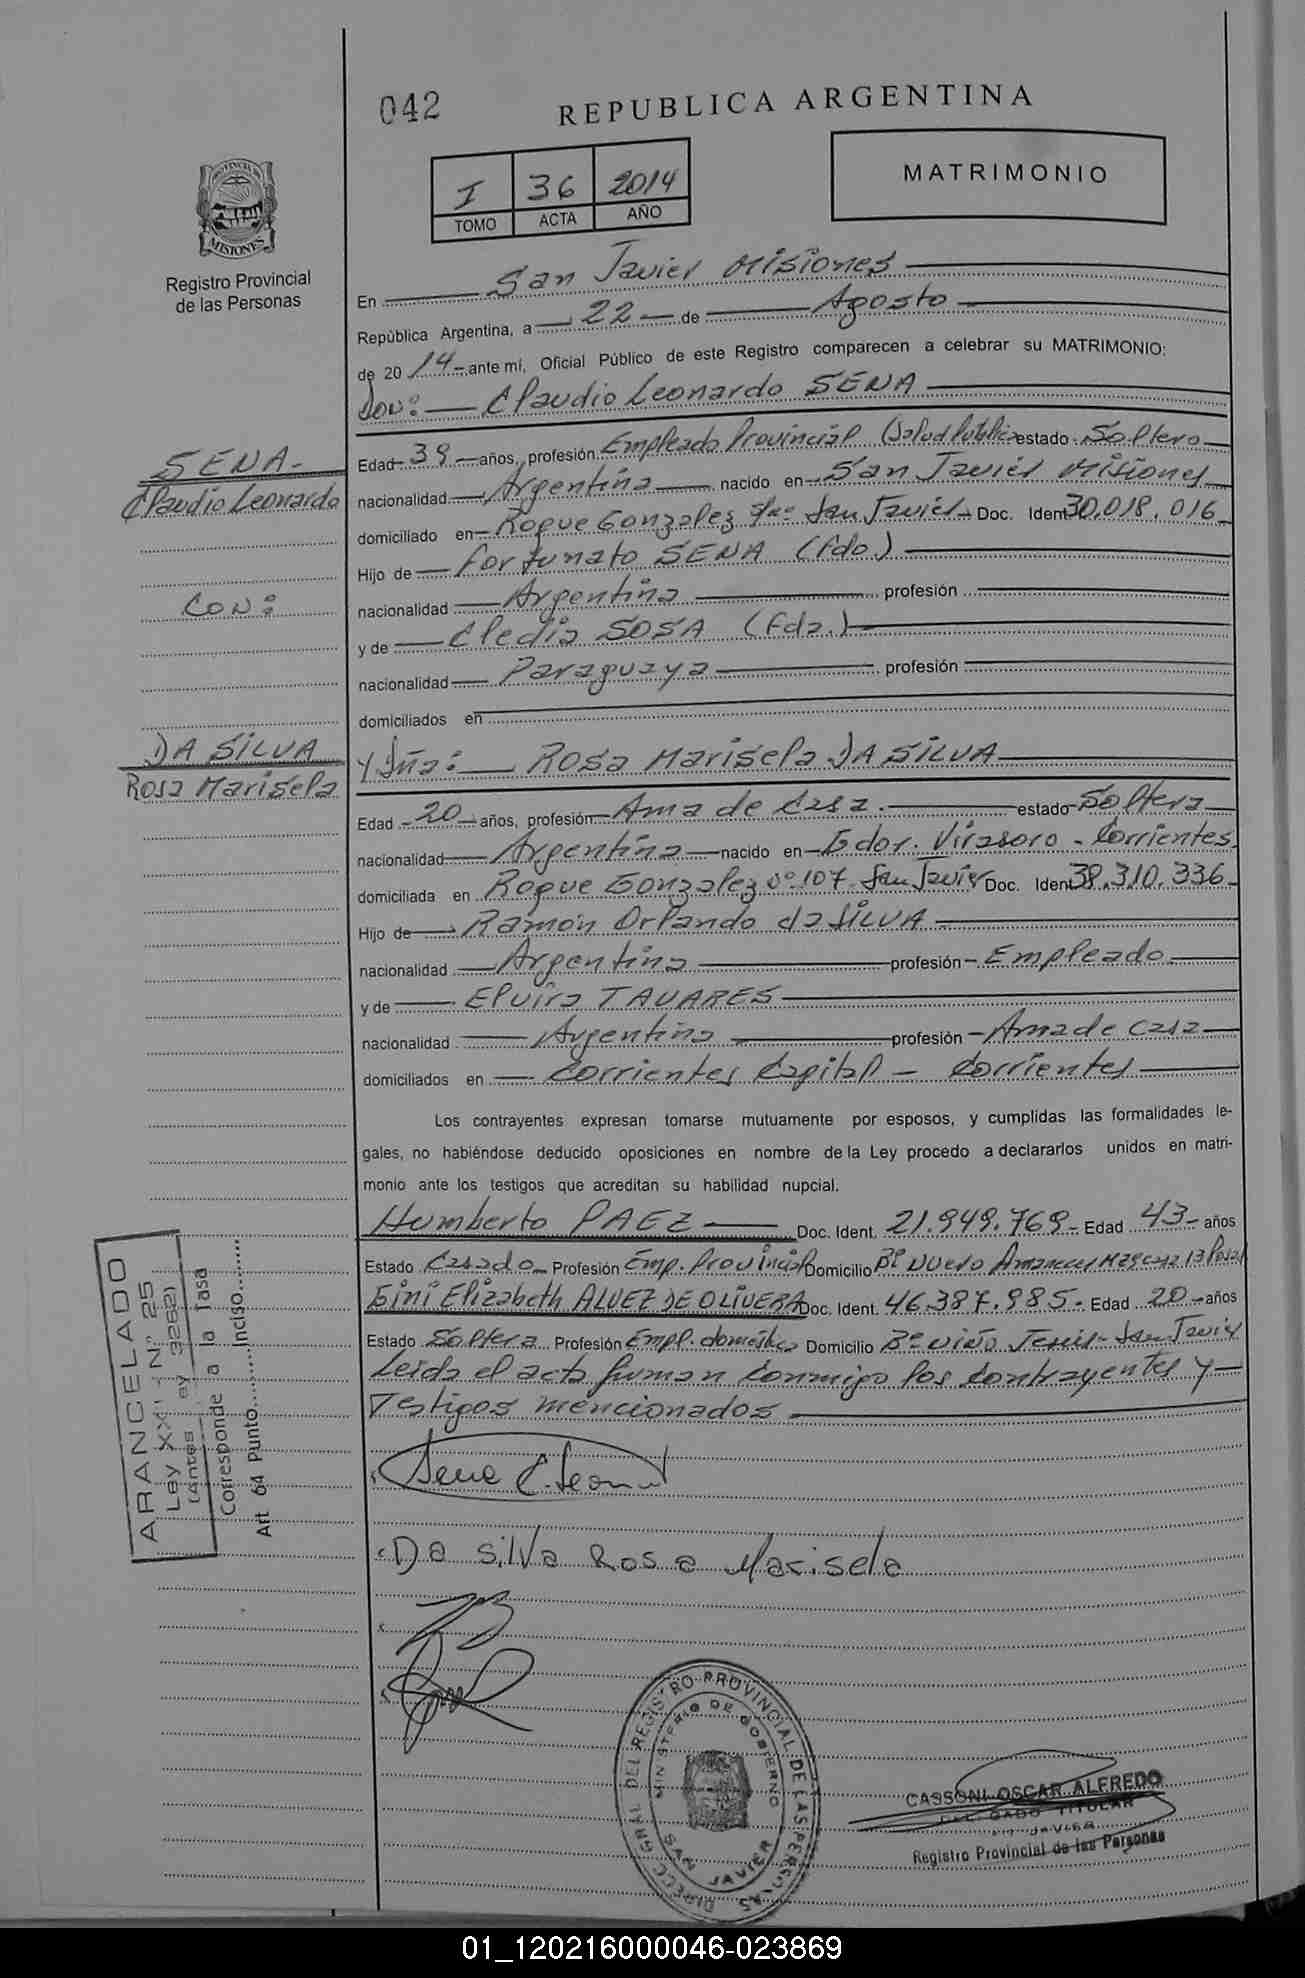 042
REPUBLICA ARGENTINA
I 36 2014
TOMO ACTA AÑO
MATRIMONIO
PROVINCIA DE
MISIONES
Registro Provincial
de las Personas
En San Javier Misiones
República Argentina, a 22 de Agosto
de 2014 ante mí, Oficial Público de este Registro comparecen a celebrar su MATRIMONIO:
Don: Claudio Leonardo SENA
SENA-
Claudio Leonardo
CON:
DA SILVA
Rosa Marisela
Edad 39 años, profesión Empleado Provincial (Salud Publica estado Soltero
nacionalidad Argentina nacido en San Javier Misiones
domiciliado en Roque Gonzalez s/nº San Javier Doc. Ident 30.018.016
Hijo de Fortunato SENA (fdo)
nacionalidad Argentina profesión
y de Cledia SOSA (fda.)
nacionalidad Paraguaya profesión
domiciliados en
Y Dña: Rosa Marisela DA SILVA
Edad 20 años, profesión Ama de Casa estado Soltera
nacionalidad Argentina nacido en Gdor. Virasoro - Corrientes
domiciliada en Roque Gonzalez nº 107 San Javier Doc. Iden 38.310.336
Hijo de Ramón Orlando da SILVA
nacionalidad Argentina profesión Empleado
y de Elvira TAVARES
nacionalidad Argentina profesión Ama de Casa
domiciliados en Corrientes Capital - Corrientes
Los contrayentes expresan tomarse mutuamente por esposos, y cumplidas las formalidades le-
gales, no habiéndose deducido oposiciones en nombre de la Ley procedo a declararlos unidos en matri-
monio ante los testigos que acreditan su habilidad nupcial.
Humberto PAEZ Doc. Ident. 21.949.769 Edad 43 años
Estado Casado Profesión Emp. Provincial Domicilio Bº Nuevo Amanecer
Gini Elizabeth ALVEZ DE OLIVERA Doc. Ident. 46.387.985 Edad 20 años
Estado Soltera Profesión Empl. doméstica Domicilio Bº Niño Jesús - San Javier
Leida el acta firman conmigo los contrayentes y
Testigos mencionados
ARANCELADO
Ley XXII Nº 25
(antes Ley 3262)
Corresponde a la Tasa
Art 64 Punto.......Inciso.......
Sena C. Leon
Da Silva Rosa Marisela
DIRECC. GRAL. DEL REGISTRO PROVINCIAL DE LAS PERSONAS
MINISTERIO DE GOBIERNO
SAN JAVIER
CASSONI OSCAR ALFREDO
DELEGADO TITULAR
SAN JAVIER
Registro Provincial de las Personas
01_120216000046-023869